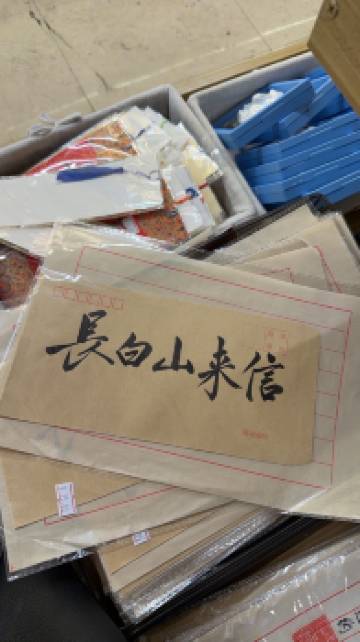 長白山来信